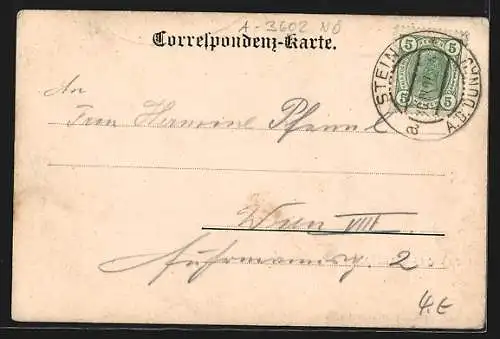 A-3602 NÖ
Correspondenz-Karte.
5 5
5 5
STEIN
A.D. DONAU
a
An
Frau Hermine Pfannl
Wien VIII
Fuhrmannsg. 2
4.E